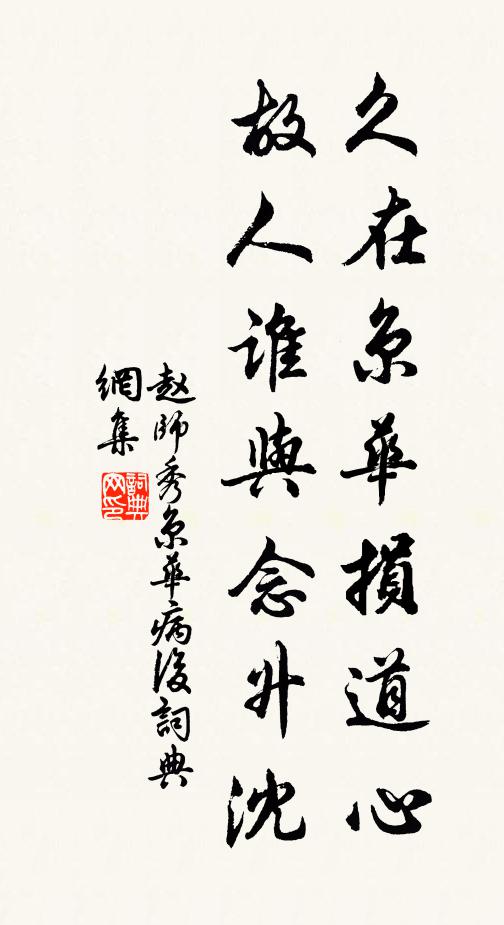 久在京華損道心
故人誰與念升沈
赵師秀京華病後詞典
網集
詞典
网印